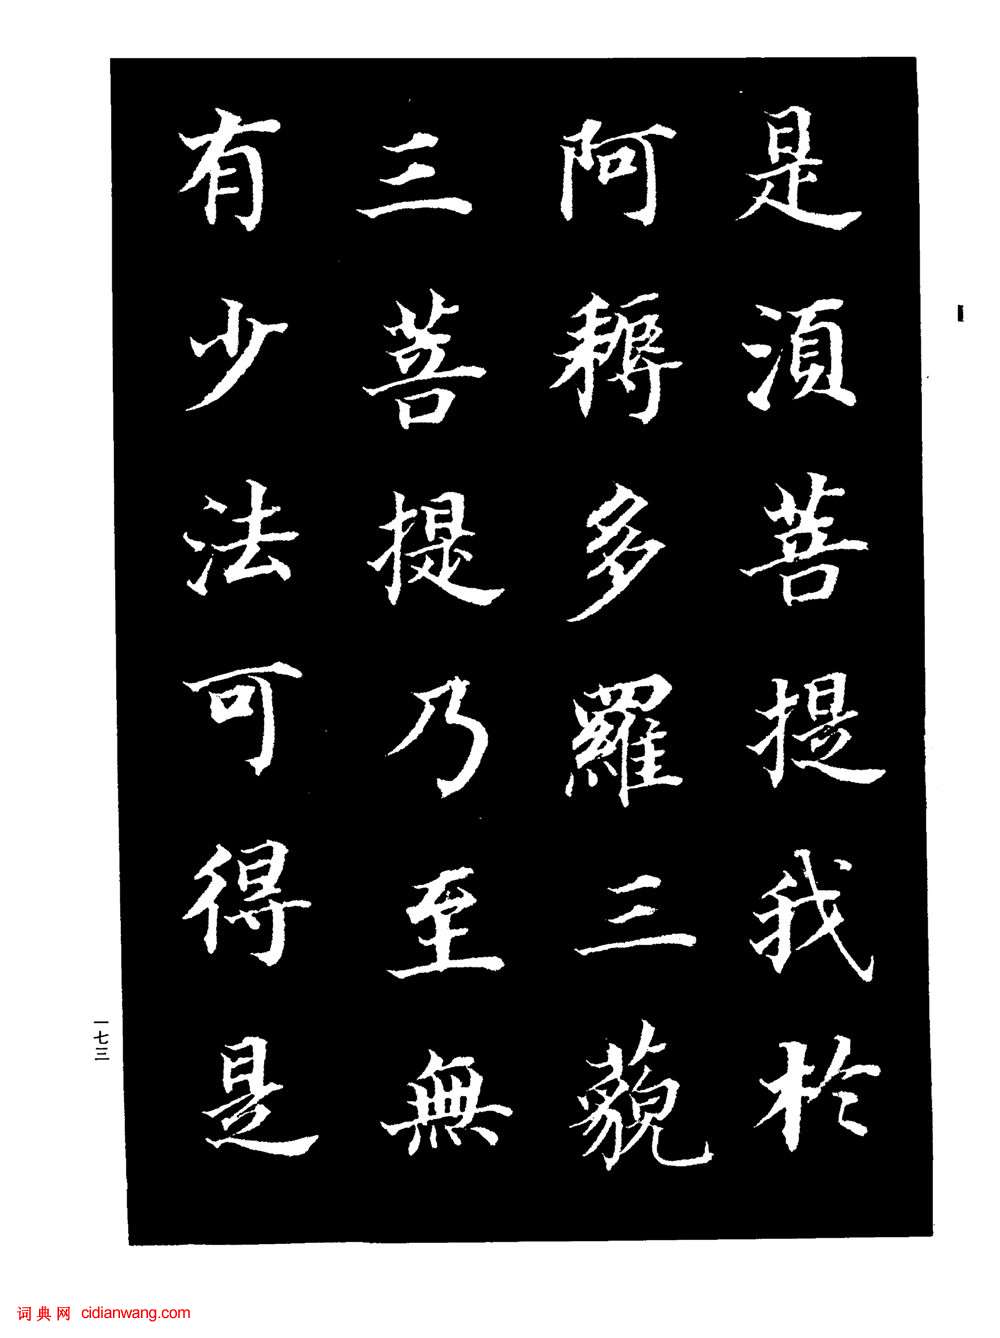 是湏菩提我於
阿耨多羅三藐
三菩提乃至無
有少法可得是
一七三
词典网 cidianwang.com